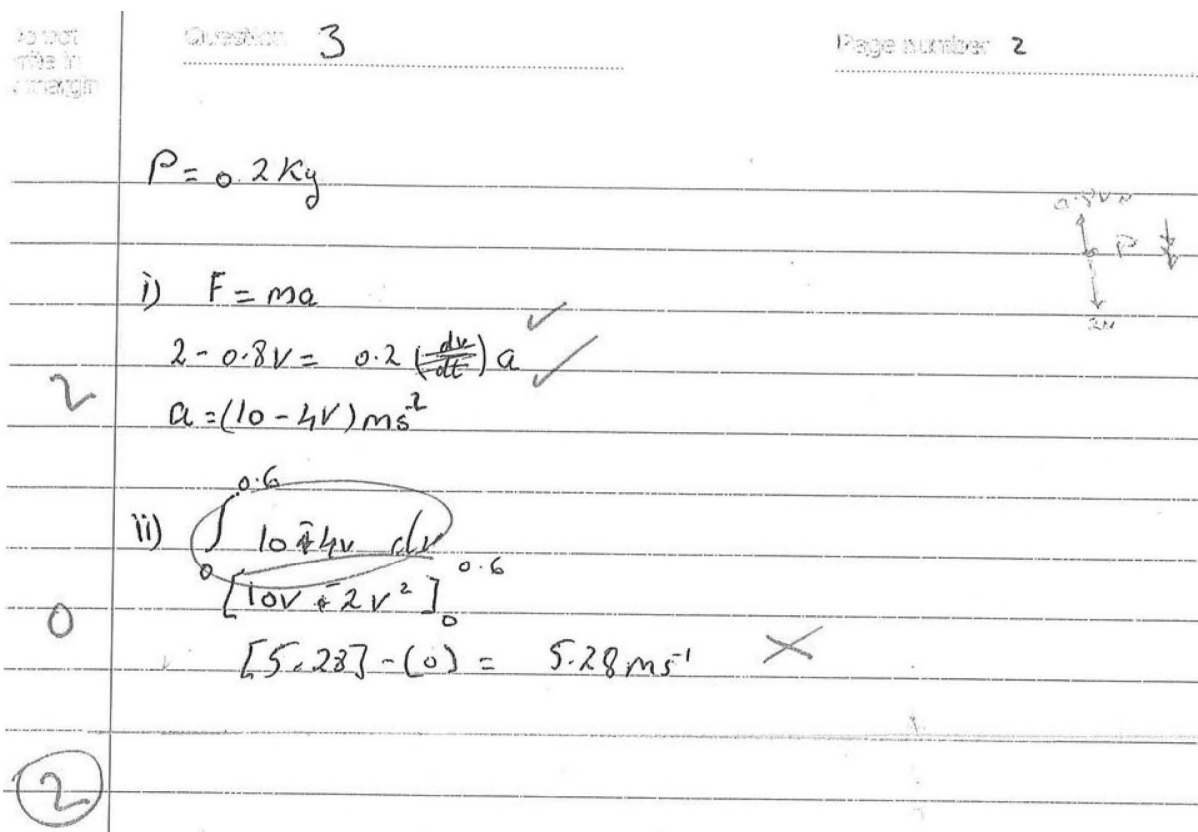 Do not
write in
margin
Question 3
Page number 2
P = 0.2 Kg
0.8v N
P
2N
i) F = ma
2 - 0.8V = 0.2 (dv/dt) a
2
a = (10 - 4V) ms⁻²
ii) ∫ 0.6 0 10 - 4v dv
[10v - 2v²] 0.6 0
0
[5.28] - (0) = 5.28 ms⁻¹
2